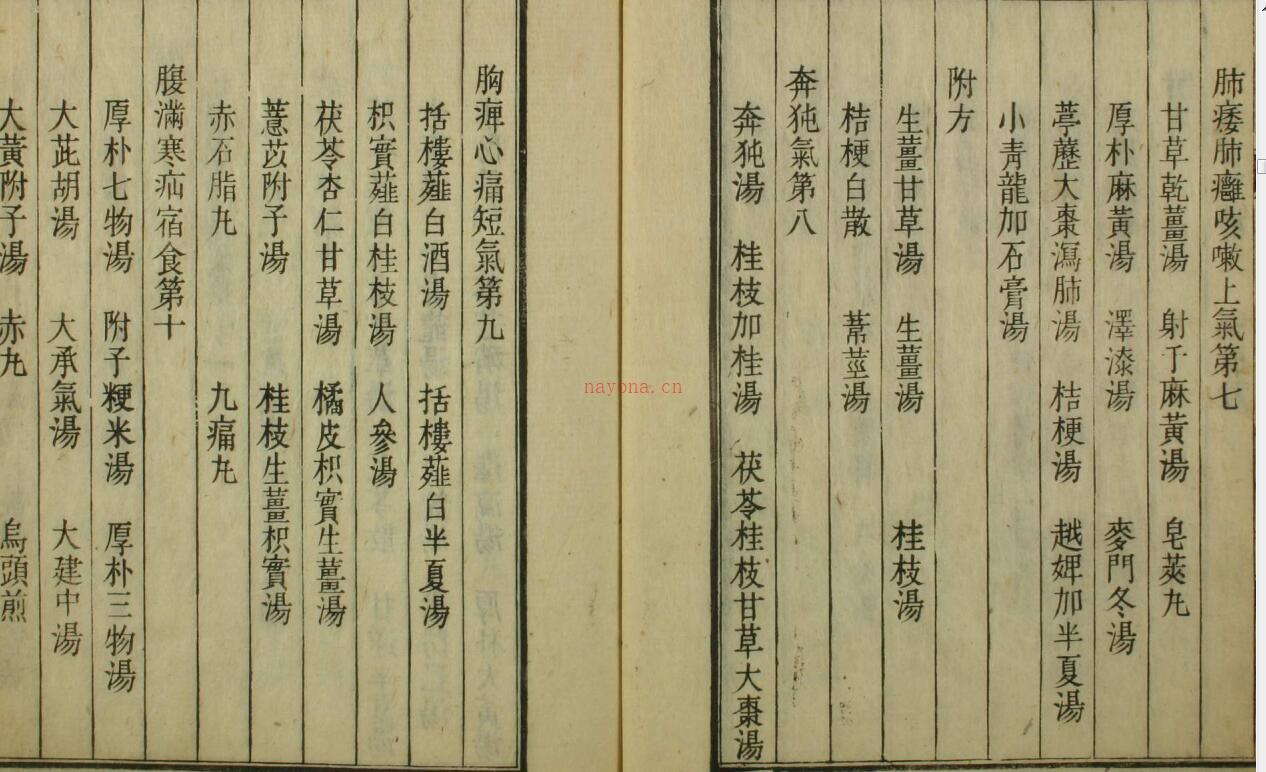 肺痿肺癰咳嗽上氣第七
甘草乾薑湯　射干麻黃湯　皂莢丸
厚朴麻黃湯　澤漆湯　麥門冬湯
葶藶大棗瀉肺湯　桔梗湯　越婢加半夏湯
小青龍加石膏湯
附方
生薑甘草湯　生薑湯　桂枝湯
桔梗白散　葦莖湯
奔㹠氣第八
奔㹠湯　桂枝加桂湯　茯苓桂枝甘草大棗湯
胸痺心痛短氣第九
括樓薤白酒湯　括樓薤白半夏湯
枳實薤白桂枝湯　人參湯
茯苓杏仁甘草湯　橘皮枳實生薑湯
薏苡附子湯　桂枝生薑枳實湯
赤石脂丸　九痛丸
腹滿寒疝宿食第十
厚朴七物湯　附子粳米湯　厚朴三物湯
大茈胡湯　大承氣湯　大建中湯
大黃附子湯　赤丸　烏頭煎
nayona.cn